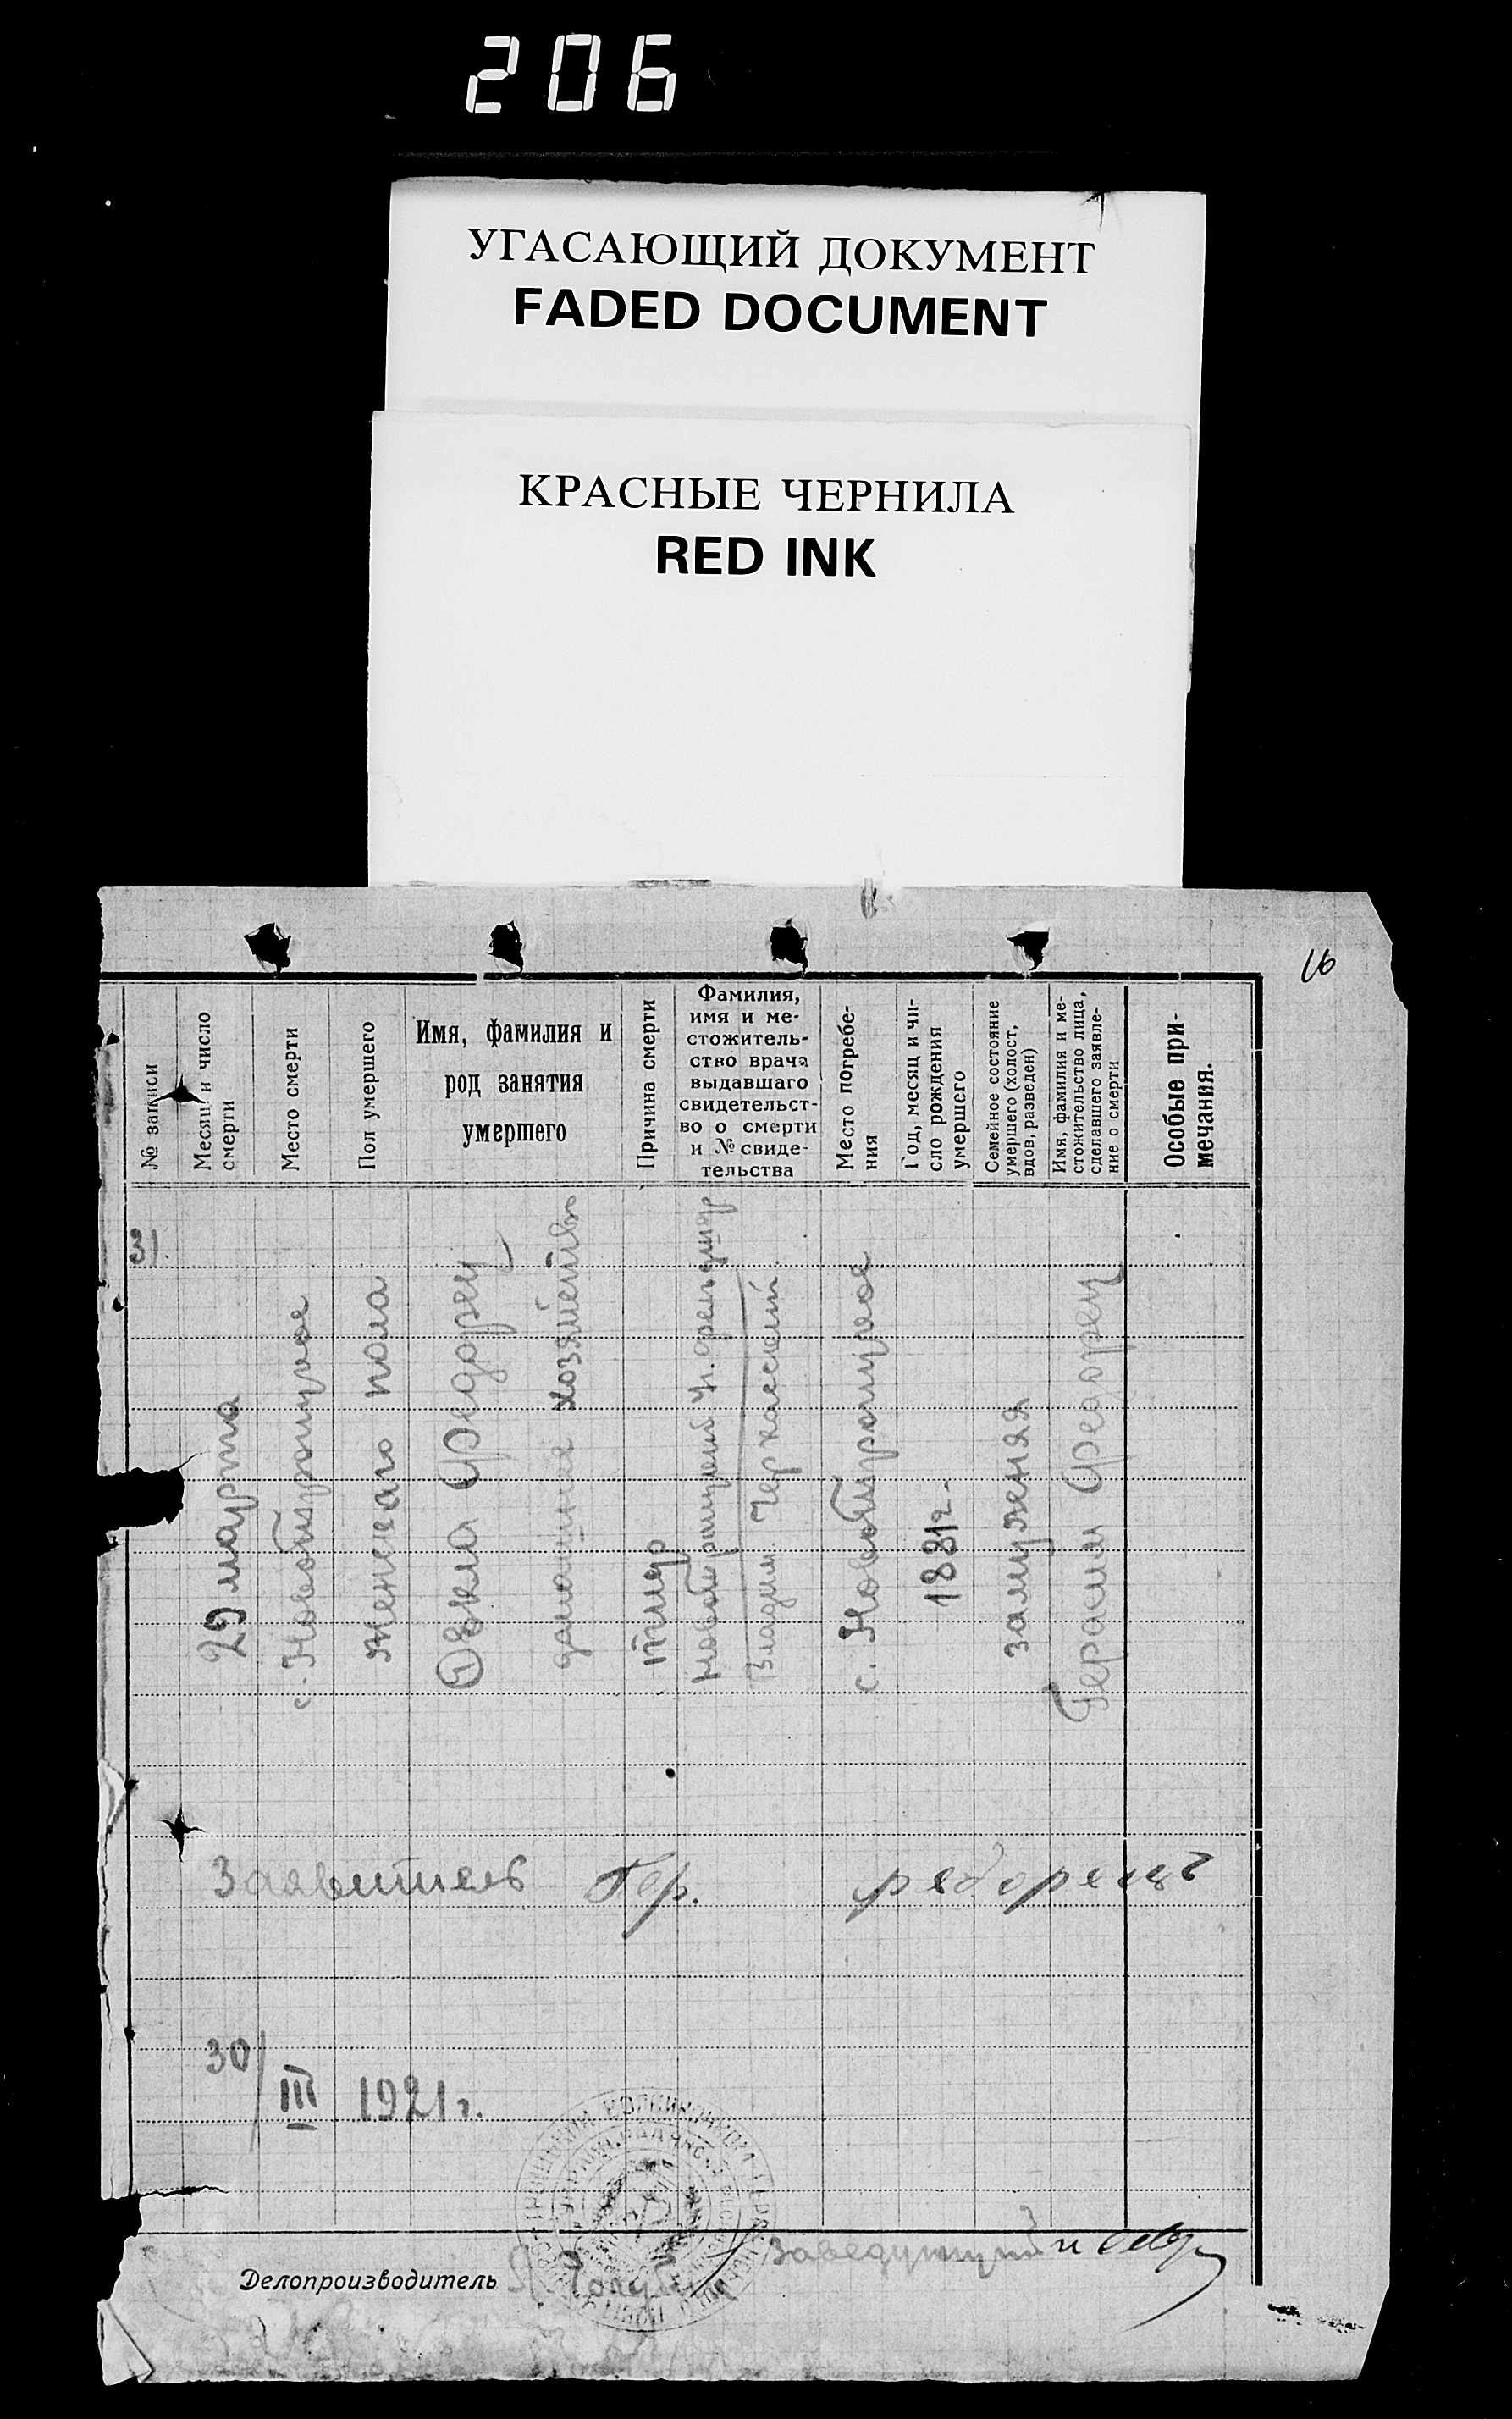 206
УГАСАЮЩИЙ ДОКУМЕНТ
FADED DOCUMENT
КРАСНЫЕ ЧЕРНИЛА
RED INK
16
№ записи
Месяц и число
смерти
Место смерти
Пол умершего
Имя, фамилия и
род занятия
умершего
Причина смерти
Фамилия,
имя и ме-
стожитель-
ство врача
выдавшаго
свидетельст-
во о смерти
и № свиде-
тельства
Место погребе-
ния
Год, месяц и чи-
сло рождения
умершего
Семейное состояние
умершего (холост,
вдов, разведен)
Имя, фамилия и ме-
стожительство лица,
сделавшего заявле-
ние о смерти
Особые при-
мечания.
31.
29 марта
с. Новотроицкое
женскаго пола
Фекла Федорец
домашнее хозяйство
тиф
Владим. Черкасский
с. Новотроицкое
1881 г.
замужняя
Герасим Федорец
Заявитель Гер. Федорец
30/III 1921 г.
Делопроизводитель
Заведующий